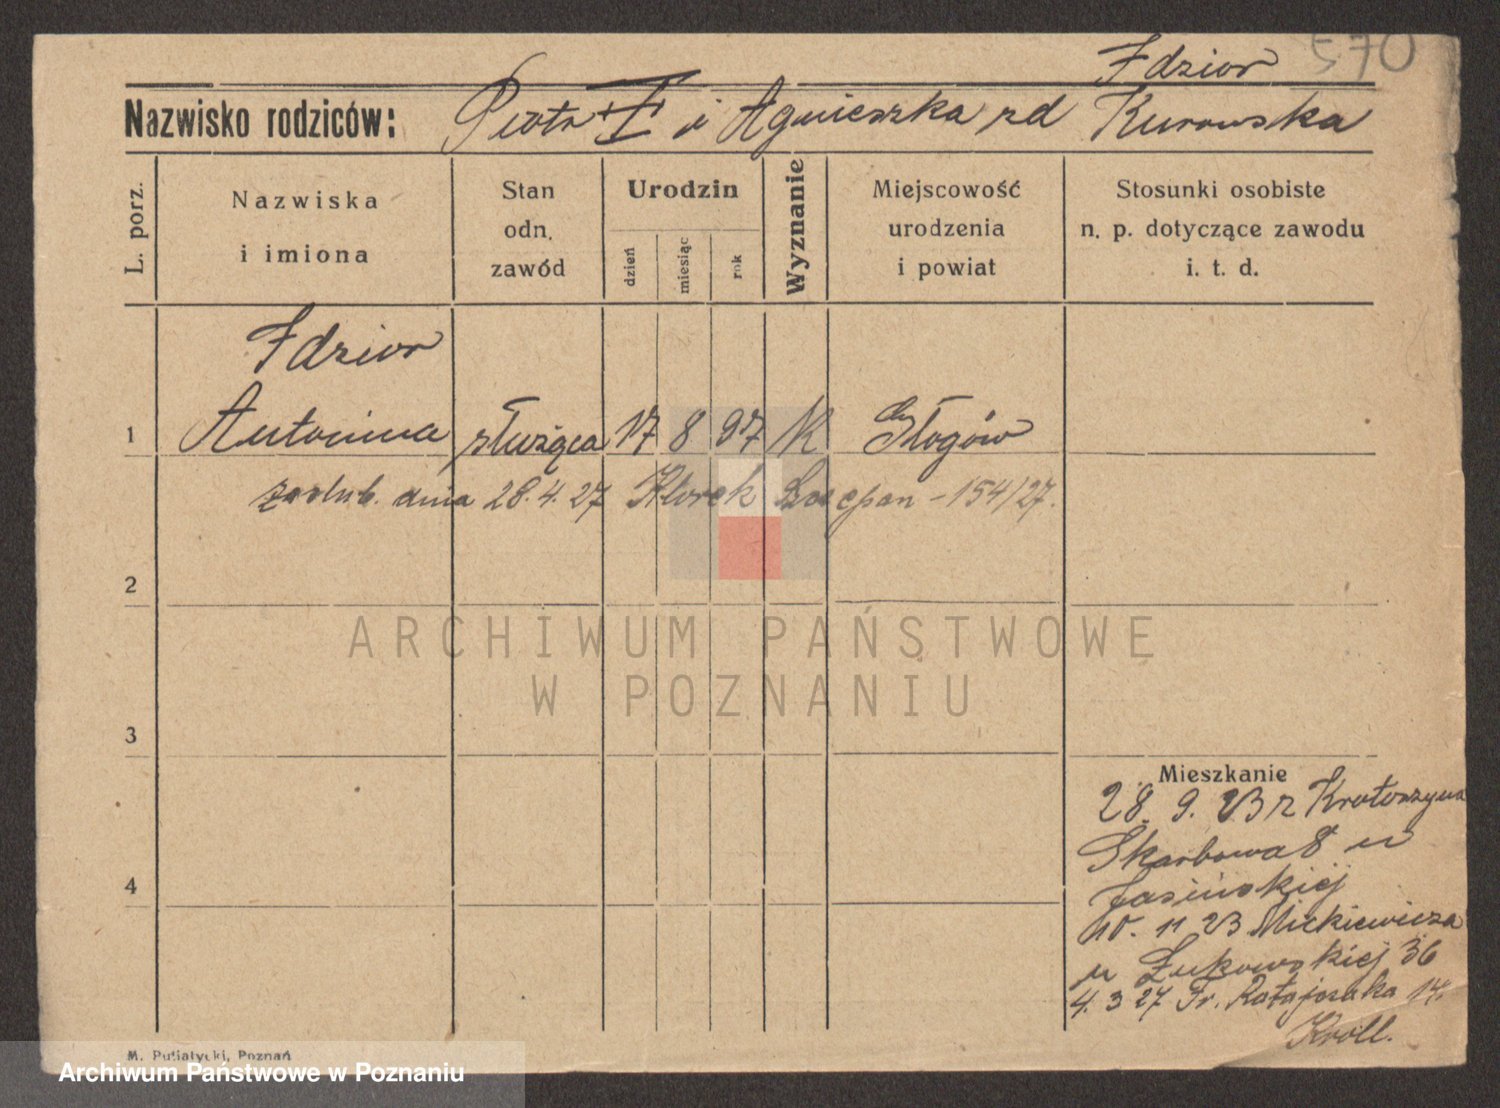 570
Idzior
Nazwisko rodziców: Piotr i Agnieszka zd Kurowska
L. porz.
Nazwiska
i imiona
Stan
odn.
zawód
Urodzin
dzień
miesiąc
rok
Wyznanie
Miejscowość
urodzenia
i powiat
Stosunki osobiste
n. p. dotyczące zawodu
i. t. d.
Idzior
1 Antonina służąca 17 8 97 K Głogów
zaślub. dnia 28.4.27 Szczepan - 154/27.
2
ARCHIWUM PAŃSTWOWE
W POZNANIU
3
Mieszkanie
28. 9. 23 z Krotoszyna
Skarbowa 8 u
4
Jasińskiej
10. 11 23 Mickiewicza
u Żukowskiej 36
4. 3 27 Fr. Ratajczaka 14.
Kroll.
M. Putiatycki, Poznań
Archiwum Państwowe w Poznaniu